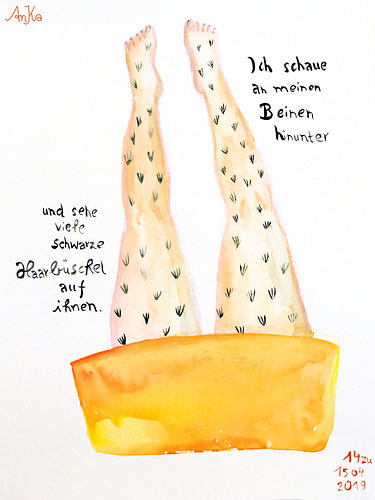 AnKa
Ich schaue
an meinen
Beinen
hinunter
und sehe
viele
schwarze
Haarbüschel
auf
ihnen.
14 zu
15 04
2019